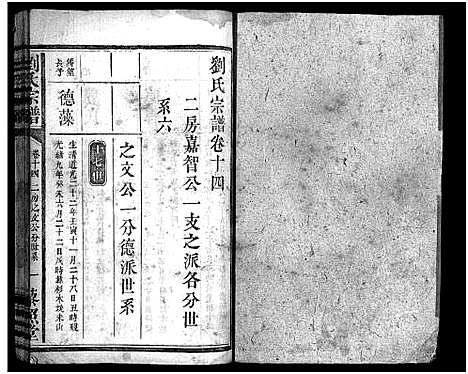 劉氏宗譜卷十四
二房嘉智公一支之派各分世
系六
之文公一分德派世系
十七世
長子
德藻
生清道光二十二年壬寅十一月二十八日丑時歿
光緒九年癸未六月二十二日戌時葬杉木坡米山
劉氏宗譜
卷十四
二房之文公分世系
一